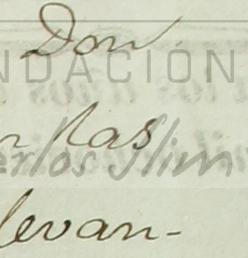 Don
NDACIÓN
n las
erlos Slim
levan-